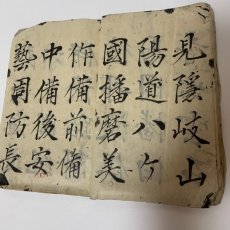 見隠岐山
陽道八ケ
國播磨美
作備前備
中備後安
藝周防長